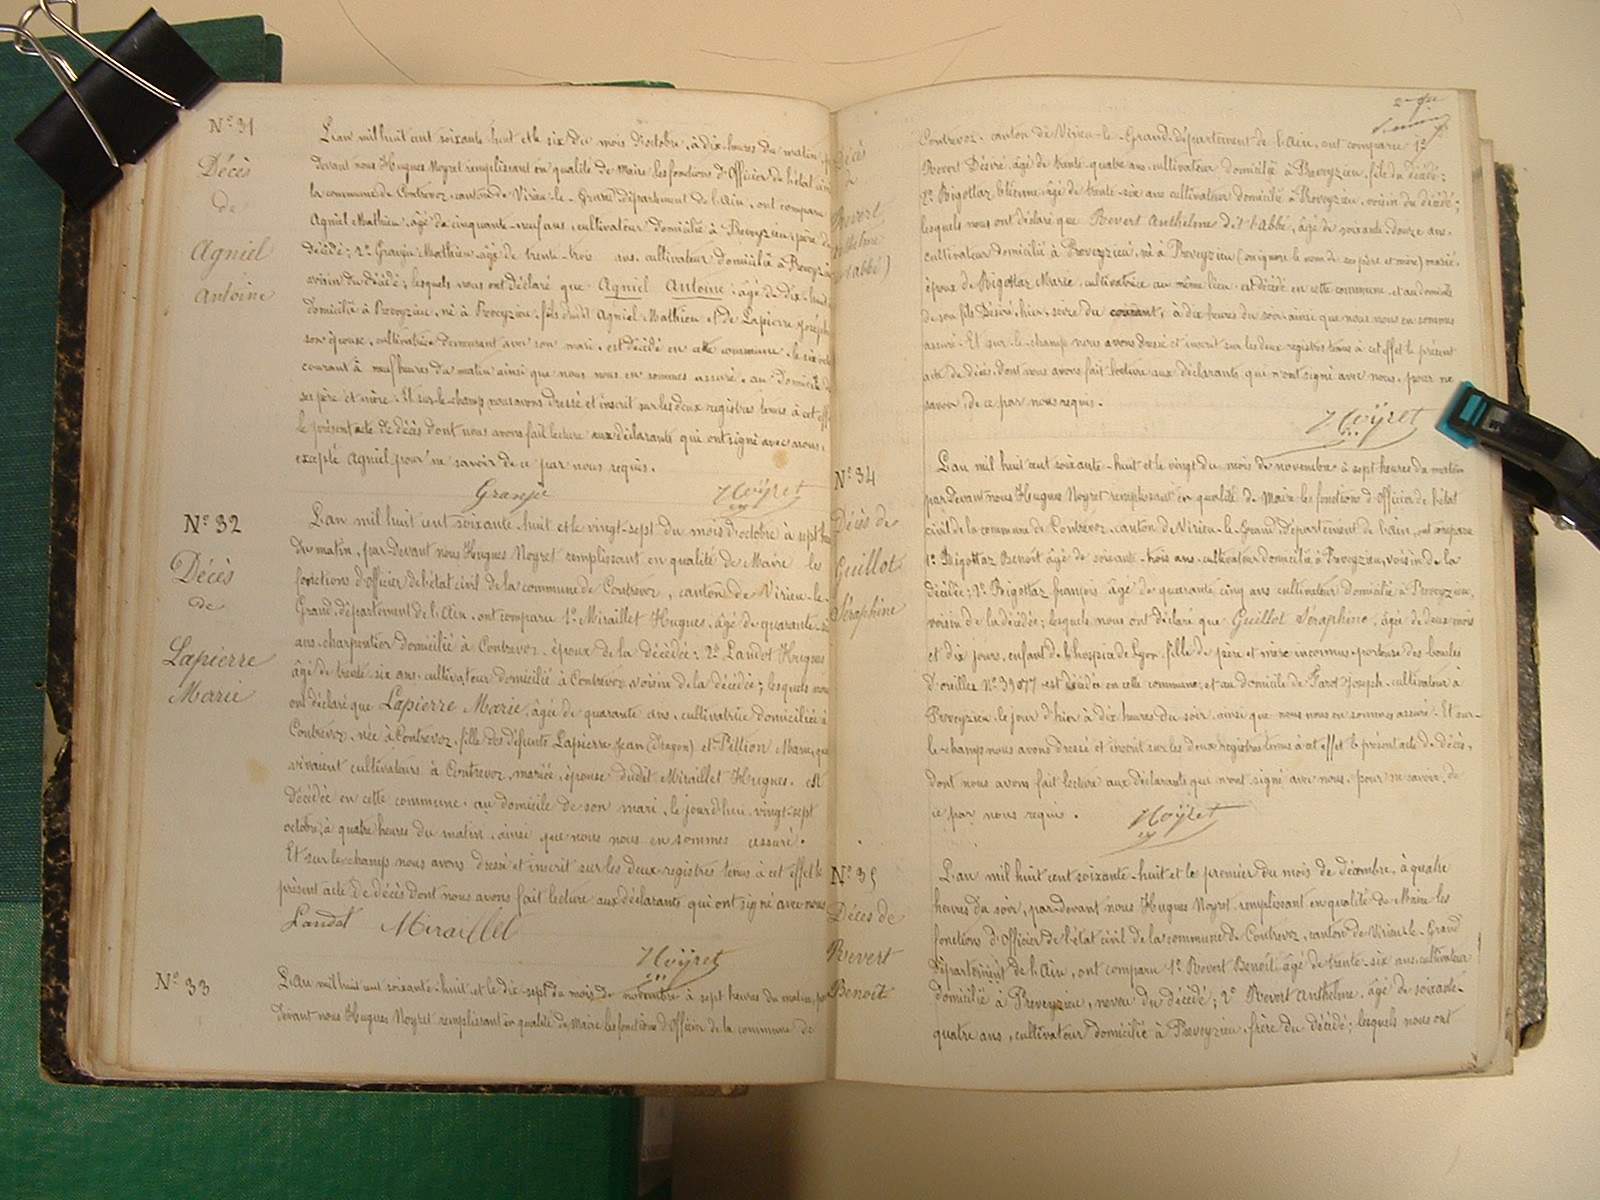 N° 31
Décès
de
Agniel
Antoine
L'an mil huit cent soixante-huit et le six du mois d'octobre, à dix heures du matin,
devant nous Hugues Noyret remplissant en qualité de Maire les fonctions d'Officier de l'état civil
la commune de Contrevoz, canton de Virieu-le-Grand, département de l'Ain, ont comparu
Agniel Mathieu, âgé de cinquante-neuf ans, cultivateur domicilié à Preveyzieu, père du
décédé; 2° Granju Mathieu âgé de trente-trois ans, cultivateur domicilié à Preveyzieu
voisin du décédé; lesquels nous ont déclaré que Agniel Antoine, âgé de dix-huit
domicilié à Preveyzieu, né à Preveyzieu, fils dudit Agniel Mathieu et de Lapierre Joseph
son épouse, cultivatrice demeurant avec son mari, est décédé en cette commune, le six
courant à neuf heures du matin ainsi que nous nous en sommes assuré, au domicile de
ses père et mère. Et sur-le-champ nous avons dressé et inscrit sur les deux registres tenus à cet eff
le présent acte de décès dont nous avons fait lecture aux déclarants qui ont signé avec nous,
excepté Agniel pour ne savoir de ce par nous requis.
Noyret
N° 32
Décès
de
Lapierre
Marie
L'an mil huit cent soixante-huit et le vingt-sept du mois d'octobre à sept
du matin, par-devant nous Hugues Noyret remplissant en qualité de Maire les
fonctions d'Officier de l'état civil de la commune de Contrevoz, canton de Virieu-le-
Grand, département de l'Ain, ont comparu 1° Miraillet Hugues, âgé de quarante-
ans, charpentier domicilié à Contrevoz, époux de la décédée; 2° Landot Hugues
âgé de trente-six ans, cultivateur domicilié à Contrevoz, voisin de la décédée; lesquels nous
ont déclaré que Lapierre Marie, âgée de quarante ans, cultivatrice domiciliée à
Contrevoz, née à Contrevoz, fille des défunts Lapierre Jean (Dragon) et Pellion Marie, qui
vivaient cultivateurs à Contrevoz, mariée, épouse dudit Miraillet Hugues, est
décédée en cette commune, au domicile de son mari, le jourd'hui, vingt-sept
octobre, à quatre heures du matin, ainsi que nous nous en sommes assuré.
Et sur-le-champ nous avons dressé et inscrit sur les deux registres tenus à cet effet le
présent acte de décès dont nous avons fait lecture aux déclarants qui ont signé avec nous
Landot Miraillet
Noyret
N° 33
L'An mil huit cent soixante-huit et le dix-sept du mois de novembre à sept heures du matin, par
devant nous Hugues Noyret remplissant en qualité de Maire les fonctions d'Officier de la commune de
Décès
de
Revert
Anthelme
l'abbé)
Contrevoz, canton de Virieu-le-Grand, département de l'Ain, ont comparu 1°
Revert Désiré, âgé de trente-quatre ans, cultivateur domicilié à Preveyzieu, fils du décédé;
2° Bigottaz Etienne, âgé de trente-six ans cultivateur domicilié à Preveyzieu, voisin du décédé;
lesquels nous ont déclaré que Revert Anthelme dit l'abbé, âgé de soixante-douze ans,
cultivateur domicilié à Preveyzieu, né à Preveyzieu (on ignore le nom de ses père et mère) marié,
époux de Bigottaz Marie, cultivatrice au même lieu, est décédé en cette commune, et au domicile
de son fils Désiré, hier, seize du courant, à dix heures du soir ainsi que nous nous en sommes
assuré. Et sur-le-champ nous avons dressé et inscrit sur les deux registres tenus à cet effet le présent
acte de décès, dont nous avons fait lecture aux déclarants, qui n'ont signé avec nous, pour ne
savoir, de ce par nous requis.
Noyret
N° 34
Décès de
Guillot
Séraphine
L'an mil huit cent soixante-huit et le vingt du mois de novembre à sept heures du matin
par-devant nous Hugues Noyret remplissant en qualité de Maire les fonctions d'Officier de l'état
civil de la commune de Contrevoz, canton de Virieu-le-Grand, département de l'Ain, ont comparu
1° Bigottaz Benoît âgé de soixante-trois ans, cultivateur domicilié à Preveyzieu, voisin de la
décédée; 2° Bigottaz françois, âgé de quarante cinq ans cultivateur domicilié à Preveyzieu,
voisin de la décédée; lesquels nous ont déclaré que Guillot Séraphine, âgée de deux mois
et dix jours, enfant de l'hospice de Lyon, fille de père et mère inconnus, porteuse des boucles
d'oreilles N° 39077 est décédée en cette commune, et au domicile de Farot Joseph, cultivateur à
Preveyzieu, le jour d'hier à dix heures du soir, ainsi que nous nous en sommes assuré. Et sur-
le-champ nous avons dressé et inscrit sur les deux registres tenus à cet effet le présent acte de décès,
dont nous avons fait lecture aux déclarants qui n'ont signé avec nous, pour ne savoir, de
ce par nous requis.
Noyret
N° 35
Décès de
Revert
Benoît
L'an mil huit cent soixante-huit et le premier du mois de décembre, à quatre
heures du soir, par-devant nous Hugues Noyret, remplissant en qualité de Maire les
fonctions d'Officier de l'état civil de la commune de Contrevoz, canton de Virieu-le-Grand
département de l'Ain, ont comparu 1° Revert Benoît âgé de trente-six ans, cultivateur
domicilié à Preveyzieu, neveu du décédé; 2° Revert Anthelme, âgé de soixante-
quatre ans, cultivateur domicilié à Preveyzieu, frère du décédé; lesquels nous ont